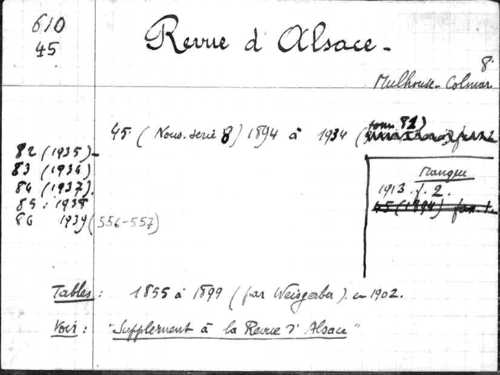 610
45
Revue d'Alsace -
8°
Mulhouse-Colmar
45 (Nouv. serie 8) 1894 à 1934 (tome 81)
82 (1935) -
83 (1936)
84 (1937).
85 : 1938
86 1939 (556-557)
Manque
1913 . 1. 2.
45 (1894)
Tables : 1855 à 1899 (par Weisgerber) en 1902.
Voir : "Supplement à la Revue d'Alsace"